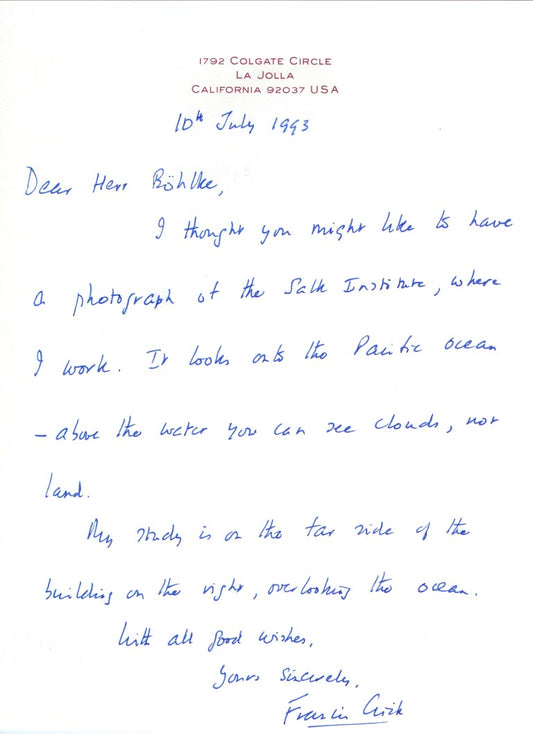 1792 COLGATE CIRCLE
LA JOLLA
CALIFORNIA 92037 USA
10th July 1993
Dear Herr Böhlke,
I thought you might like to have
a photograph of the Salk Institute, where
I work. It looks onto the Pacific ocean
- above the water you can see clouds, not
land.
My study is on the far side of the
building on the right, overlooking the ocean.
With all good wishes,
Yours sincerely,
Francis Crick